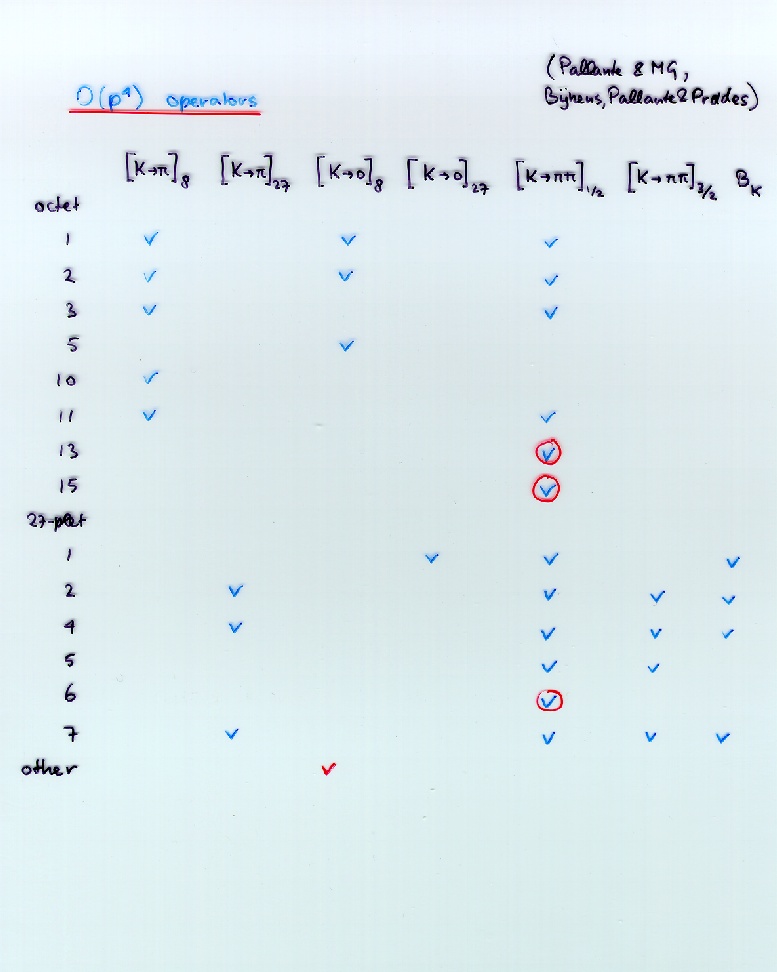 (Pallante & MG,
O(p⁴) operators
Bijnens, Pallante & Prades)
[K→π]₈ [K→π]₂₇ [K→0]₈ [K→0]₂₇ [K→ππ]₁/₂ [K→ππ]₃/₂ B_K
octet
1 ✓ ✓ ✓
2 ✓ ✓ ✓
3 ✓ ✓
5 ✓
10 ✓
11 ✓ ✓
13 ✓
15 ✓
27-plet
1 ✓ ✓ ✓
2 ✓ ✓ ✓ ✓
4 ✓ ✓ ✓ ✓
5 ✓ ✓
6 ✓
7 ✓ ✓ ✓ ✓
other ✓